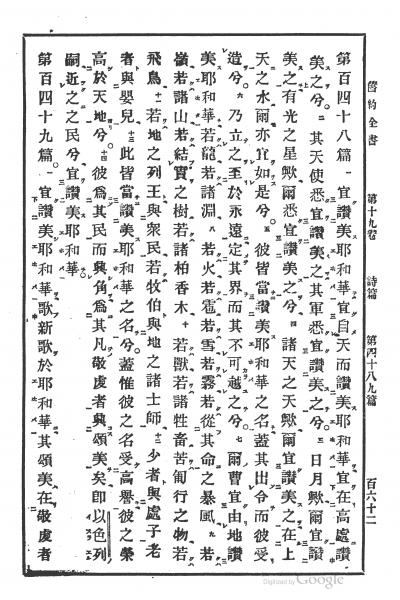 舊約全書　第十九卷　詩篇　第四十八九篇　百六十二
第百四十八篇一宜讚美耶和華宜自天而讚美耶和華宜在高處讚
美之兮二其天使悉宜讚美之其軍悉宜讚美之兮三日月歟爾宜讚
美之有光之星歟爾悉宜讚美之兮四諸天之天歟爾宜讚美之在上
天之水爾亦宜如是兮五彼皆當讚美耶和華之名蓋其出令而彼受
造兮六乃立之至於永遠定其界而其不可越之兮七爾曹宜由地讚
美耶和華若龍若諸淵八若火若雹若雪若霧若從其命之暴風九若
嶺若諸山若結實之樹若諸柏香木十若獸若諸牲畜若匍行之物若
飛鳥十一若地之列王與衆民若牧伯與地之諸士師十二少者與處子老
者與嬰兒十三此皆當讚美耶和華之名兮蓋惟彼之名受高舉彼之榮
高於天地兮十四彼爲其民而興角爲其凡敬虔者興頌美矣卽以色列
嗣近之之民兮宜讚美耶和華
第百四十九篇一宜讚美耶和華歌新歌於耶和華其頌美在敬虔者
Digitized by Google